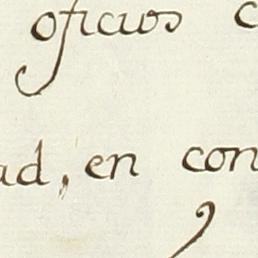 oficios c
ad, en con